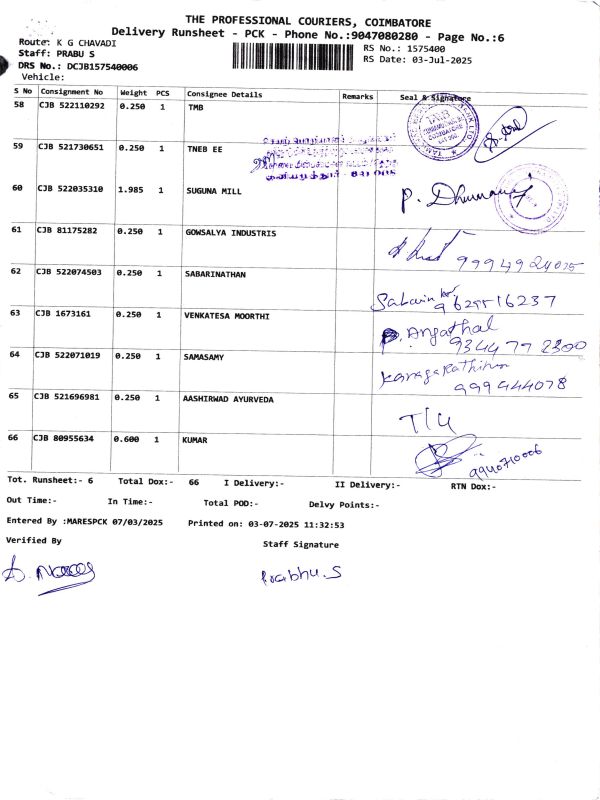 THE PROFESSIONAL COURIERS, COIMBATORE
Delivery Runsheet - PCK - Phone No.:9047080280 - Page No.:6
Route: K G CHAVADI
RS No.: 1575400
Staff: PRABU S
RS Date: 03-Jul-2025
DRS No.: DCJB157540006
Vehicle:
S No Consignment No Weight PCS Consignee Details Remarks Seal & Signature
58 CJB 522110292 0.250 1 TMB
59 CJB 521730651 0.250 1 TNEB EE
60 CJB 522035310 1.985 1 SUGUNA MILL
61 CJB 81175282 0.250 1 GOWSALYA INDUSTRIS
9994924075
62 CJB 522074503 0.250 1 SABARINATHAN
63 CJB 1673161 0.250 1 VENKATESA MOORTHI
P. Angathal
9344772300
64 CJB 522071019 0.250 1 SAMASAMY
999444078
65 CJB 521696981 0.250 1 AASHIRWAD AYURVEDA
T/U
66 CJB 80955634 0.600 1 KUMAR
9940710006
Tot. Runsheet:- 6 Total Dox:- 66 I Delivery:- II Delivery:- RTN Dox:-
Out Time:- In Time:- Total POD:- Delvy Points:-
Entered By :MARESPCK 07/03/2025 Printed on: 03-07-2025 11:32:53
Verified By Staff Signature
Prabhu.S